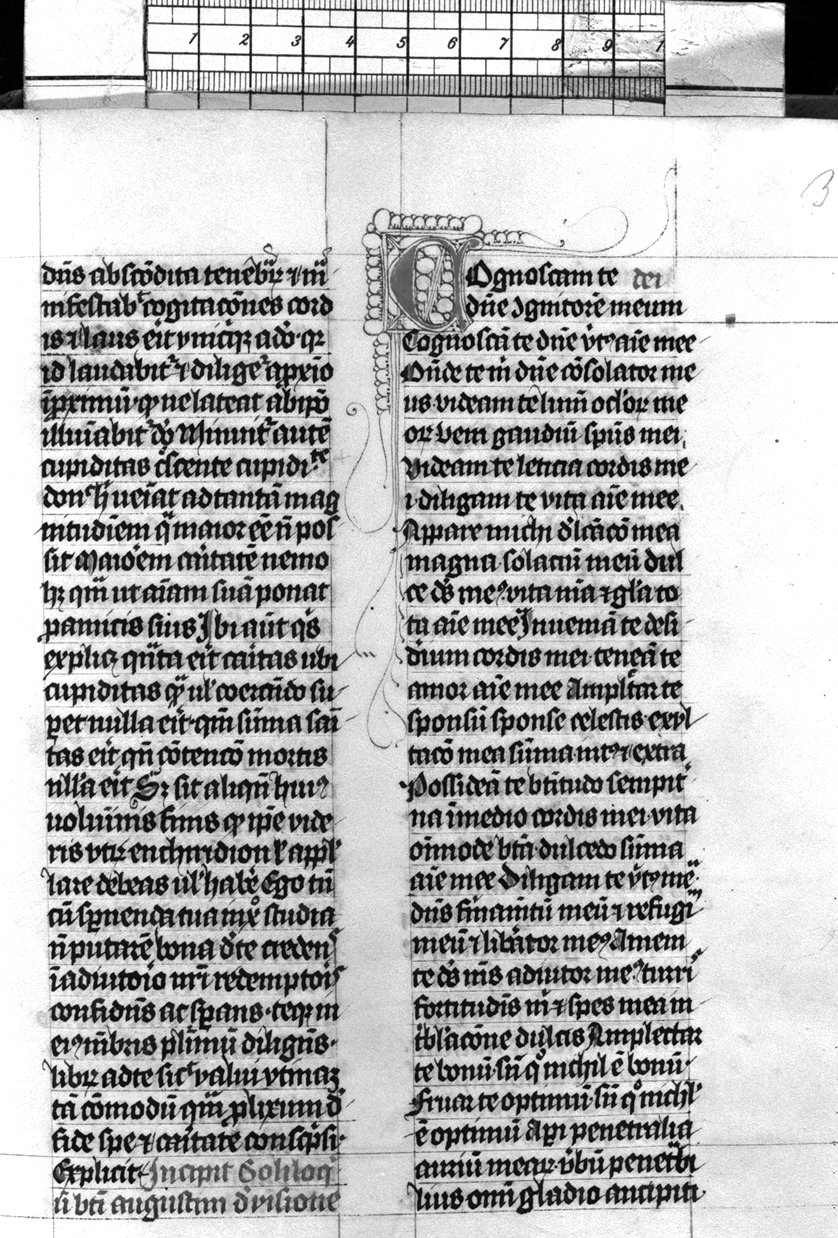 1 2 3 4 5 6 7 8 9 1
3
dn̄s abscōdita tenebͬꝝ ⁊ mͣ
nifestabᵗ cogitacōnes cord
is ⁊ laus eͥt vnicͥqꝫ a dō qꝛ
id laudabitᷣ ⁊ diligeᷣ a ꝓxīo
ī ꝓximū qͦ ne lateat ab ip̄o
illuīabitᷣ Minuitᷣ autē
cupiditas cͬscente
donͨ hͨ veīat ad tantā mag
nitudīem qͣ maior eē n̄ pos
sit Maiorem caritatē nemo
hꝫ qm̄ ut aīam suā ponat
ꝑ amicis suis Ibi aūt qͥs
explicꝫ qͣnta eͥt caritas ubi
cupiditas qͣm ul̓ coercēdo su
ꝑet nulla eͥt qm̄ sūma sani
tas eͥt qn̄ cōtencō mortis
nulla eͥt Sꝫ sit aliqn̄ huiꝰ
voluminis finis qͦ ip̄e vide
ris vtꝝ enchiridion ul̓ appel̓
lare debeas ul̓ habē̓ Ego tn̄
cū sꝑnenda tua in xͦ studia
n̄ putarē bona de te credens
ī adiutoīo nrī redemptoīs
confidēs ac sꝑans teqꝫ in
eiꝰ mēbris plimū diligēs
libꝝ ad te sicͭ valui vtinaꝫ
tā cōmodū qm̄ ꝓlixum de
fide spe ⁊ caritate conscͥpsi
Explicit Incipit Soliloq
ū btī augustini de visione
Cognoscam te dei
dn̄e ꝯgnitorē meum
Cognoscā te dn̄e vͬtꝰ aīe mee
On̄de te mͥ dn̄e cōsolator me
us videam te lumē ocl̓oꝝ me
oꝝ veni gaudiū sp̄us mei
Videam te leticia cordis me
i diligam te vita aīe mee
Appare michi del̓cacō mea
magna solaciū meū dul
ce ds̄ meꝰ vita mea ⁊ gl̓a to
ta aīe mee Inueniā te desi
deriū cordis mei teneā te
amor aīe mee Amplectar te
sponsū sponse celestis exul
tacō mea sūma intᷓ ⁊ extra
Possideā te btitudo sempit̓
na ī medio cordis mei vita
oīmode btā dulcedo sūma
aīe mee Diligam te vͬtꝰ mea
dn̄s firmamētū meū ⁊ refugi
meū ⁊ liberator meꝰ Amem
te ds̄ ms̄ adiutor meꝰ turri
fortitudīs mͥ ⁊ spes mea in
tͥbl̓acōne dulcis Amplectar
te bonū sn̄ qͦ nichil ē bonū
Fruar te optimū sn̄ qͦ nichil̓
ē optimū Apͥ penetralia
auriū mearꝝ v̓bū penetͣbi
lius omī gladio ancipiti